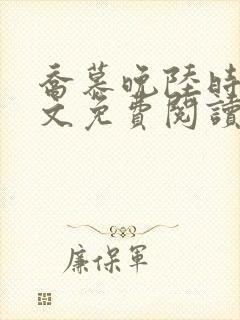 喬慕晚陸時
文免費閱讀
廉保軍